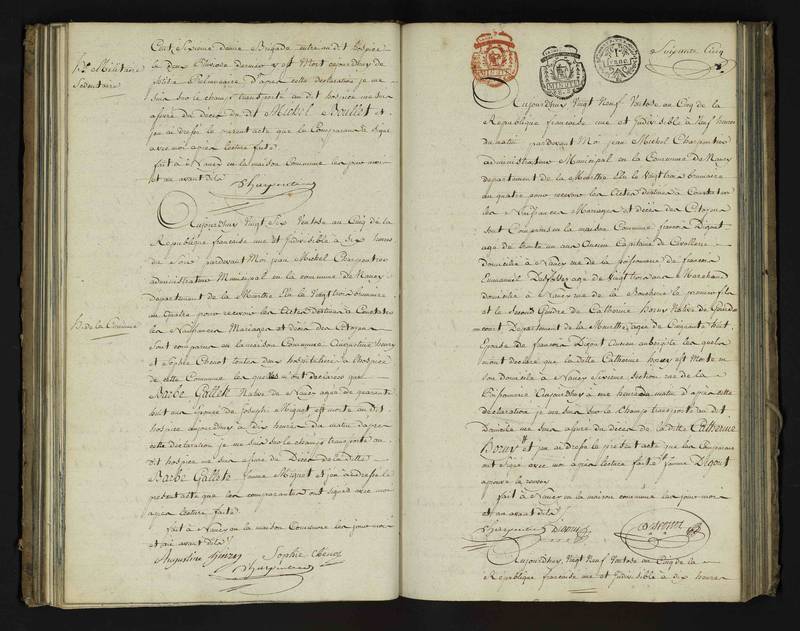 Cent Sixieme demie Brigade entré au dit hospice
le deux Pluviose dernier y est Mort aujourdhuy de
D'apres cette declaration je me
suis sur le champ transporté au dit hospice me suis
assuré du décès du dit Michel Boullet et
j'en ai dressé le present acte que la Comparante a signé
avec moi apres lecture faite.
fait à Nancy en la maison Commune les jour mois
et an avant dits
Charpentier
hce Militaire
Sedentaire
Aujourdhuy Vingt Six Ventose au Cinq de la
Republique française une et Indivisible à Six heures
de Soir pardevant Moi jean Michel Charpentier
administrateur Municipal en la commune de Nancy
departement de la Meurthe Elu le Vingt trois brumaire
au Quatre pour recevoir les Actes destinés à Constater
les Naissances Mariages et décès des Citoyens
sont comparus en la maison Commune Augustine henry
et Sophie Chenot toutes deux hospitalieres à l'hospice
de cette Commune les quelles m'ont declarées que
Barbe Gallet Native de Nancy agée de quarante
huit ans epouse de Joseph Miquet est morte au dit
hospice aujourdhuy à dix heures du matin d'apres
cette declaration je me suis sur le champ transporté au
dit hospice me suis assuré du Décès de la ditte
Barbe Gallet femme Miquet et j'en ai dressé le
present acte que les comparantes ont signés avec moi
apres lecture faite.
fait à Nancy en la maison Commune les jour mois
et an avant dits
Augustine henry Sophie Chenot
Charpentier
H. de la Commune
Soixante Cinq
Aujourdhuy Vingt Neuf Ventose au Cinq de la
Republique française une et Indivisible à Neuf heures
du matin pardevant Moi jean Michel Charpentier
administrateur Municipal en la Commune de Nancy
departement de la Meurthe Elu le Vingt trois brumaire
au quatre pour recevoir les Actes destinés à Constater
les Naissances Mariages et décès des Citoyens
sont Comparus en la maison Commune francois Digout
agé de trente un ans Ancien Capitaine de Cavallerie
domicilié à Nancy rue de la poissonnerie et francois
Emmanuel agé de Vingt trois ans Marchand
domicilié à Nancy rue de la Boucherie le premier fils
et le Second Gendre de Catherine Bony Native de
court Departement de la Meurthe, agée de Cinquante huit
Epouse de francois Digout Ancien aubergiste les quels
m'ont declaré que la ditte Catherine Bony est Morte en
son domicile à Nancy Sixieme Section rue de la
Poissonnerie Aujourdhuy à une heure du matin d'après cette
déclaration je me suis sur le Champ transporté au dit
Domicile me suis assuré du décès de la ditte Catherine
Bony et j'en ai dressé le présent acte que les Comparans
ont Signé avec moi après lecture faitte. femme Digout
aprouvé le renvoi
fait à Nancy en la maison commune les jour mois
et an avant dits
Charpentier Digout
Aujourdhuy Vingt Neuf Ventose au Cinq de la
Republique française une et Indivisible à dix heures